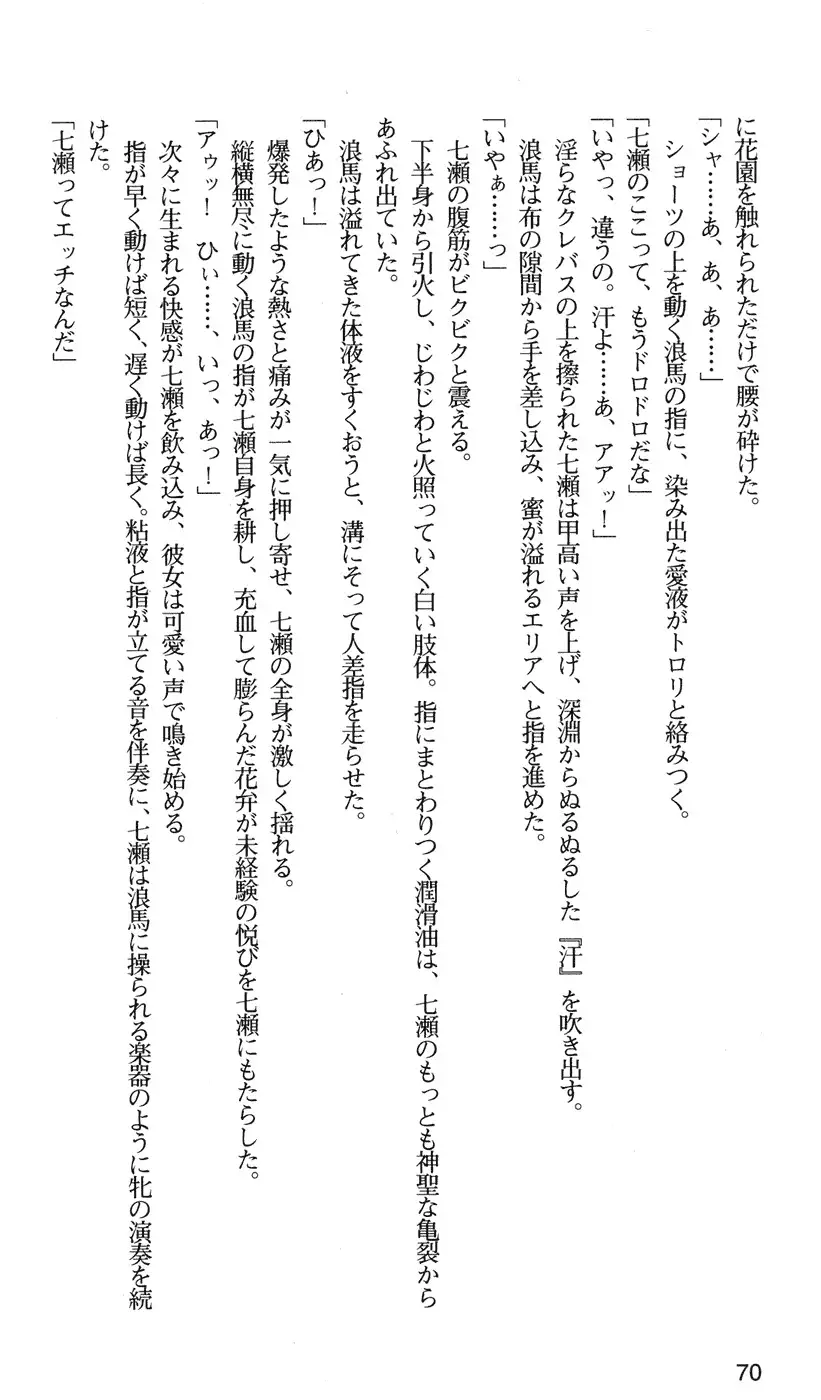 に花園を触れられただけで腰が砕けた。
「シャ……あ、あ、あ……」
ショーツの上を動く浪馬の指に、染み出た愛液がトロリと絡みつく。
「七瀬のここって、もうドロドロだな」
「いやっ、違うの。汗よ……あ、アアッ！」
淫らなクレバスの上を擦られた七瀬は甲高い声を上げ、深淵からぬるぬるした『汗』を吹き出す。
浪馬は布の隙間から手を差し込み、蜜が溢れるエリアへと指を進めた。
「いやぁ……っ」
七瀬の腹筋がビクビクと震える。
下半身から引火し、じわじわと火照っていく白い肢体。指にまとわりつく潤滑油は、七瀬のもっとも神聖な亀裂から
あふれ出ていた。
浪馬は溢れてきた体液をすくおうと、溝にそって人差指を走らせた。
「ひぁっ！」
爆発したような熱さと痛みが一気に押し寄せ、七瀬の全身が激しく揺れる。
縦横無尽に動く浪馬の指が七瀬自身を耕し、充血して膨らんだ花弁が未経験の悦びを七瀬にもたらした。
「アゥッ！　ひぃ……、いっ、あっ！」
次々に生まれる快感が七瀬を飲み込み、彼女は可愛い声で鳴き始める。
指が早く動けば短く、遅く動けば長く。粘液と指が立てる音を伴奏に、七瀬は浪馬に操られる楽器のように牝の演奏を続
けた。
「七瀬ってエッチなんだ」
70